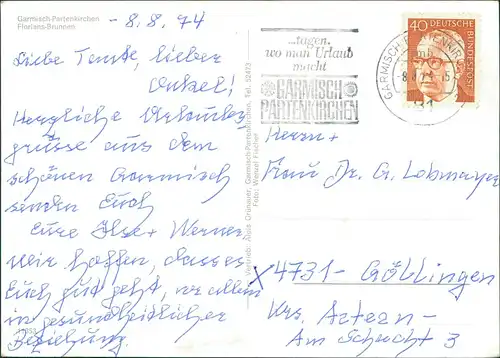 Garmisch-Partenkirchen
Florians-Brunnen
- 8.8.74
Liebe Tante, lieber
Onkel!
Herzliche Urlaubs-
grüsse aus dem
schönen Garmisch
senden Euch
Eure Ilse + Werner
Wir hoffen, dass es
Euch gut geht, vor allem
in gesundheitlicher
Beziehung.
Vertrieb: Alois Grünauer, Garmisch-Partenkirchen, Tel. 52473
Foto: Wenzel Fischer
...tagen,
wo man Urlaub
macht
GARMISCH
PARTENKIRCHEN
GARMISCH-PARTENKIRCHEN
40 DEUTSCHE
BUNDESPOST
Herrn +
Frau Dr. G. Lobmayer
X 4731 - Göllingen
Krs. Artern -
Am Schacht 3